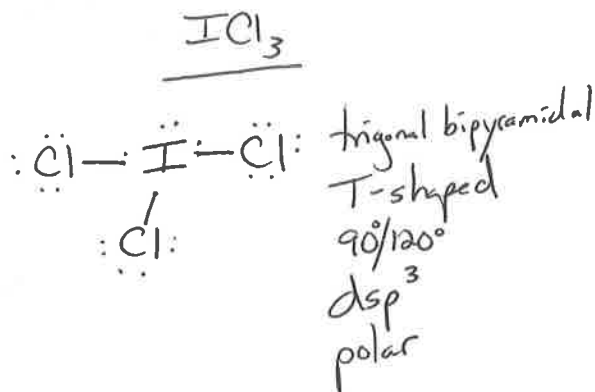 ICl₃
:Cl—I—Cl:
:Cl:
trigonal bipyramidal
T-shaped
90°/120°
dsp³
polar